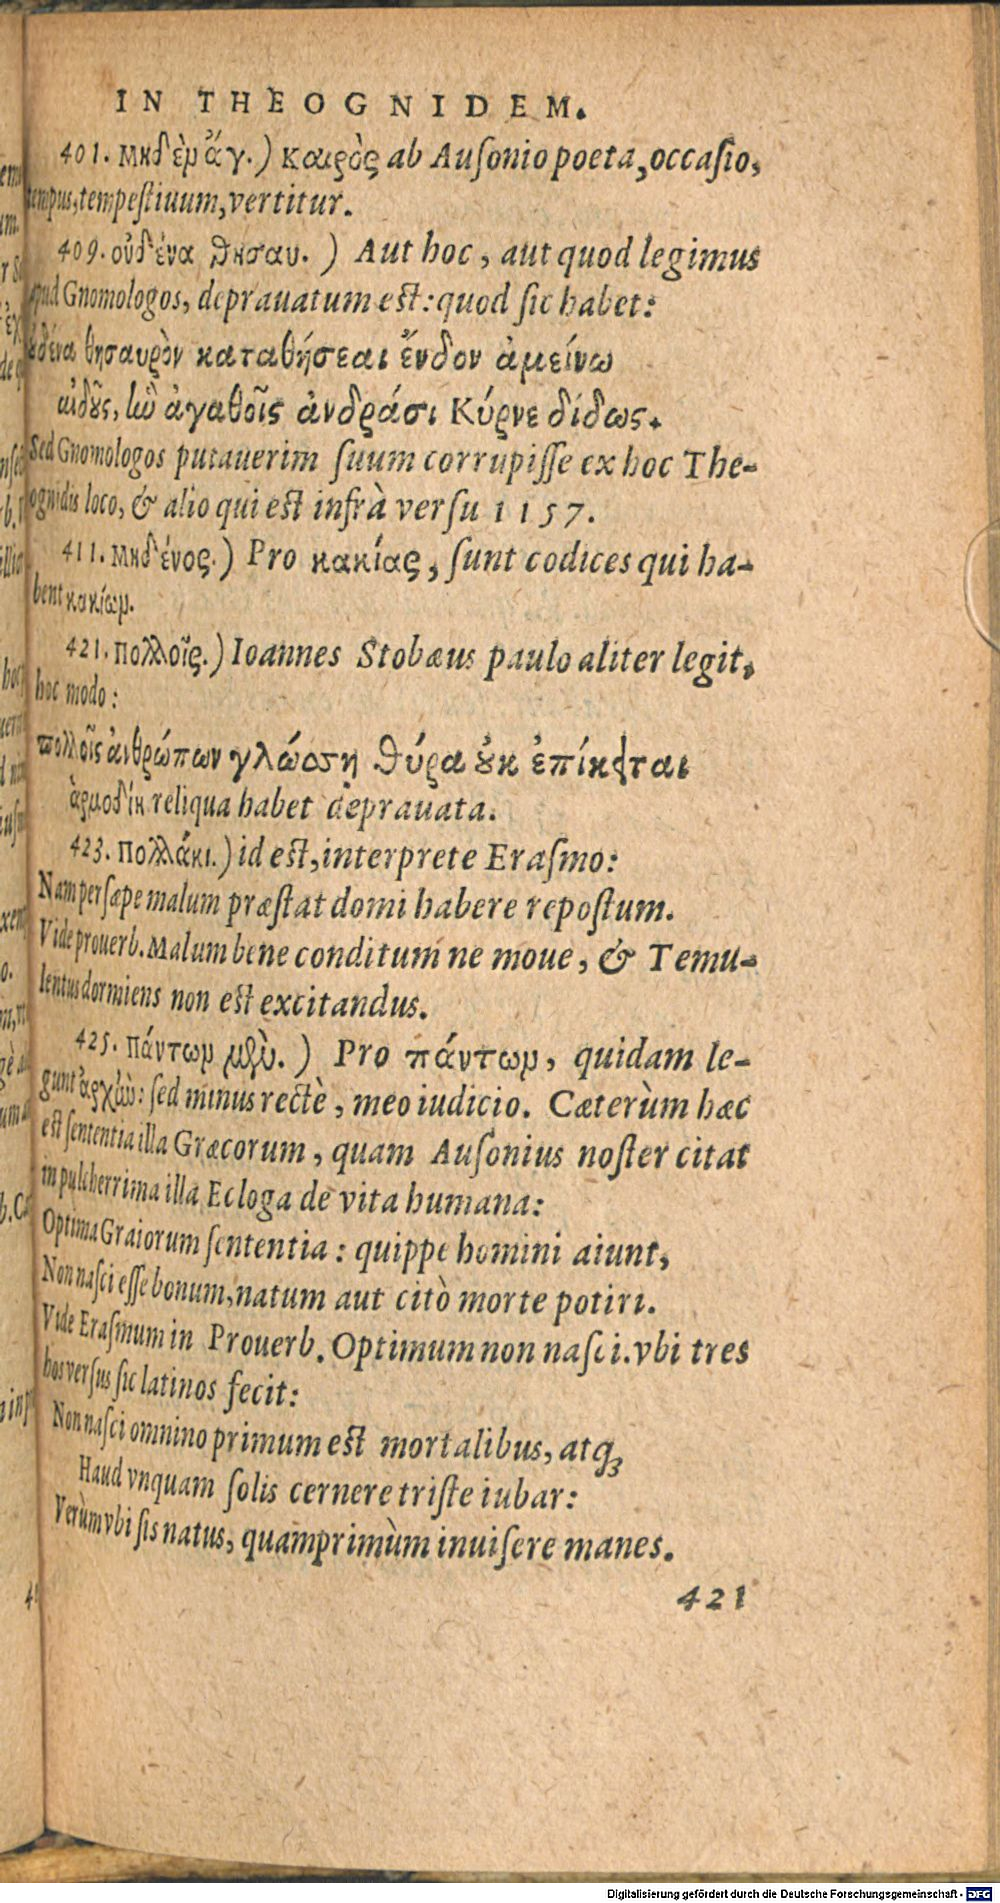 IN THEOGNIDEM.
401. Μηδὲν ἄγ.) Καιρὸς ab Auſonio poeta, occaſio,
tempus, tempeſtiuum, vertitur.
409. οὐδένα θησαυ. ) Aut hoc, aut quod legimus
apud Gnomologos, deprauatum eſt: quod ſic habet:
οὐδένα θησαυρὸν καταθήσεαι ἔνδον ἀμείνω
αἰδοῦς, ἣν ἀγαθοῖς ἀνδράσι Κύρνε δίδως.
Sed Gnomologos putauerim ſuum corrupiſſe ex hoc The-
ognidis loco, & alio qui eſt infrà verſu 1157.
411. Μηδένος.) Pro κακίας, ſunt codices qui ha-
bent κακίων.
421. Πολλοῖς.) Ioannes Stobæus paulo aliter legit,
hoc modo:
πολλοῖς ἀνθρώπων γλώσση θύρα οὐκ ἐπίκειται
ἁρμοδίη reliqua habet deprauata.
423. Πολλάκι.) id eſt, interprete Eraſmo:
Nam perſæpe malum præſtat domi habere repoſtum.
Vide prouerb. Malum bene conditum ne moue, & Temu-
lentus dormiens non eſt excitandus.
425. Πάντων μὲν. ) Pro πάντων, quidam le-
gunt ἀρχὴν: ſed minus rectè, meo iudicio. Cæterùm hæc
eſt ſententia illa Græcorum, quam Auſonius noſter citat
in pulcherrima illa Ecloga de vita humana:
Optima Graiorum ſententia: quippe homini aiunt,
Non naſci eſſe bonum, natum aut citò morte potiri.
Vide Eraſmum in Prouerb. Optimum non naſci. vbi tres
hos verſus ſic latinos fecit:
Non naſci omnino primum eſt mortalibus, atqꝫ
Haud vnquam ſolis cernere triſte iubar:
Verùm vbi ſis natus, quamprimùm inuiſere manes.
421
Digitalisierung gefördert durch die Deutsche Forschungsgemeinschaft - DFG